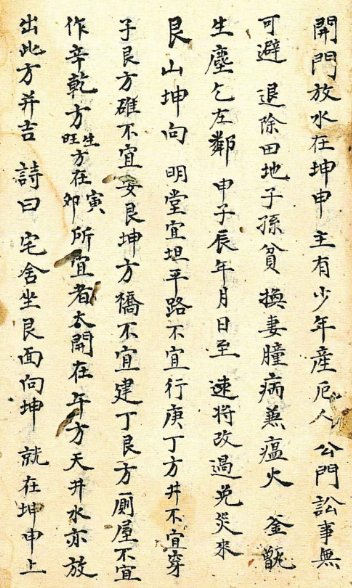 開門放水在坤申主有少年產厄人 公門訟事無
可避 退除田地子孫貧 換妻腫病兼瘟火 釜甑
生塵乞左鄰 申子辰年月日至 速將改過免災來
艮山坤向 明堂宜坦平路不宜行庚丁方井不宜穿
子艮方碓不宜安艮坤方橋不宜建丁艮方厠屋不宜
作辛乾方生旺方在寅卯所宜者太開在年方天井水亦放
出此方并吉 詩曰 宅舍坐艮面向坤 就在坤申上